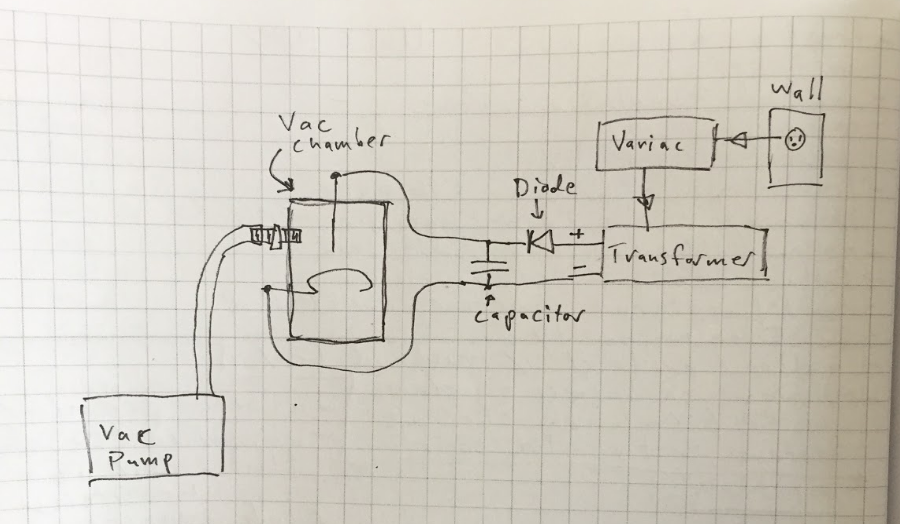 Wall
Vac
chamber
Variac
Diode
+
Transformer
-
Capacitor
Vac
Pump